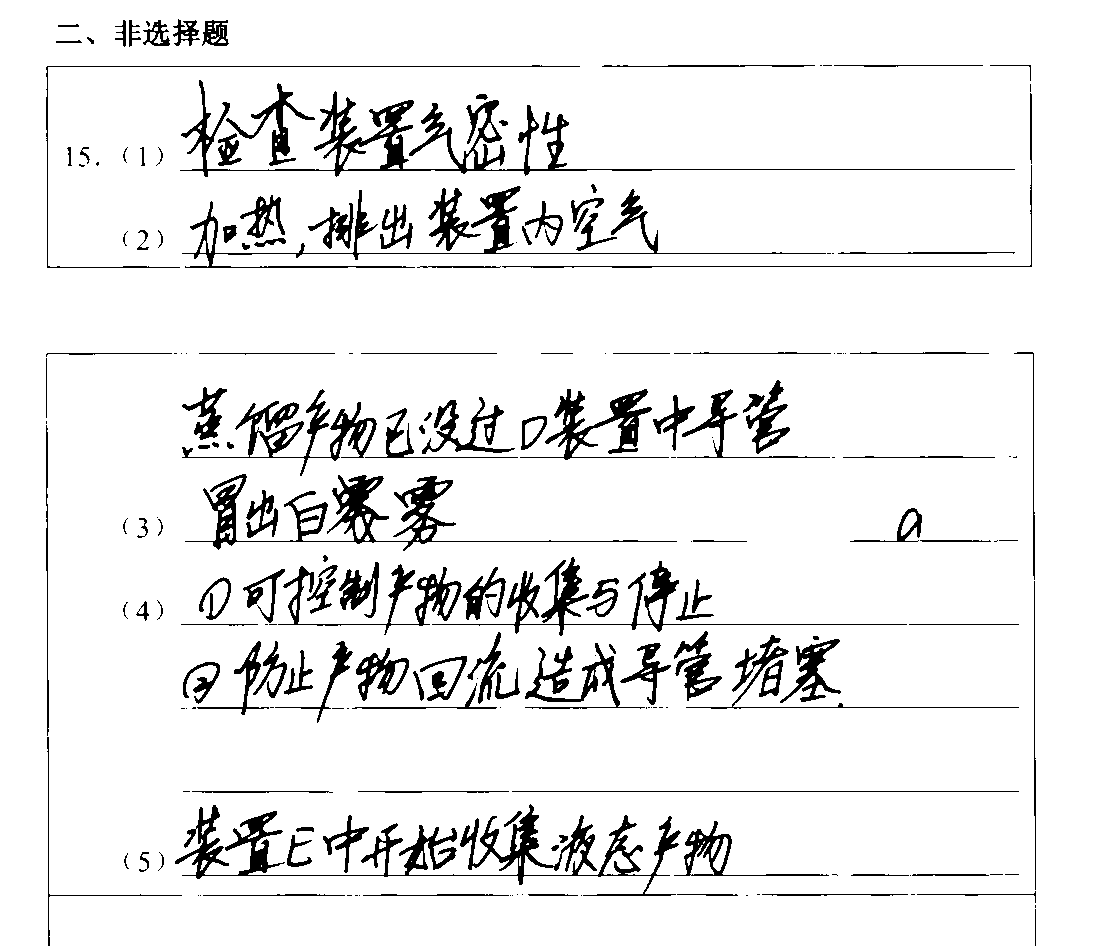 二、非选择题
15.（1）检查装置气密性
（2）加热，排出装置内空气
蒸馏产物已没过D装置中导管
（3）冒出白雾 a
（4）①可控制产物的收集与停止
②防止产物回流造成导管堵塞.
（5）装置E中开始收集液态产物